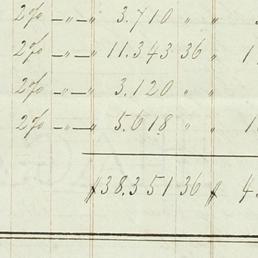 2% — " — " 3.710 " "
2% — " — " 11.343 36 " 1
2% — " — " 3.120 " "
2% — " — " 5.618 " " 1
$38.351 36 $ 4